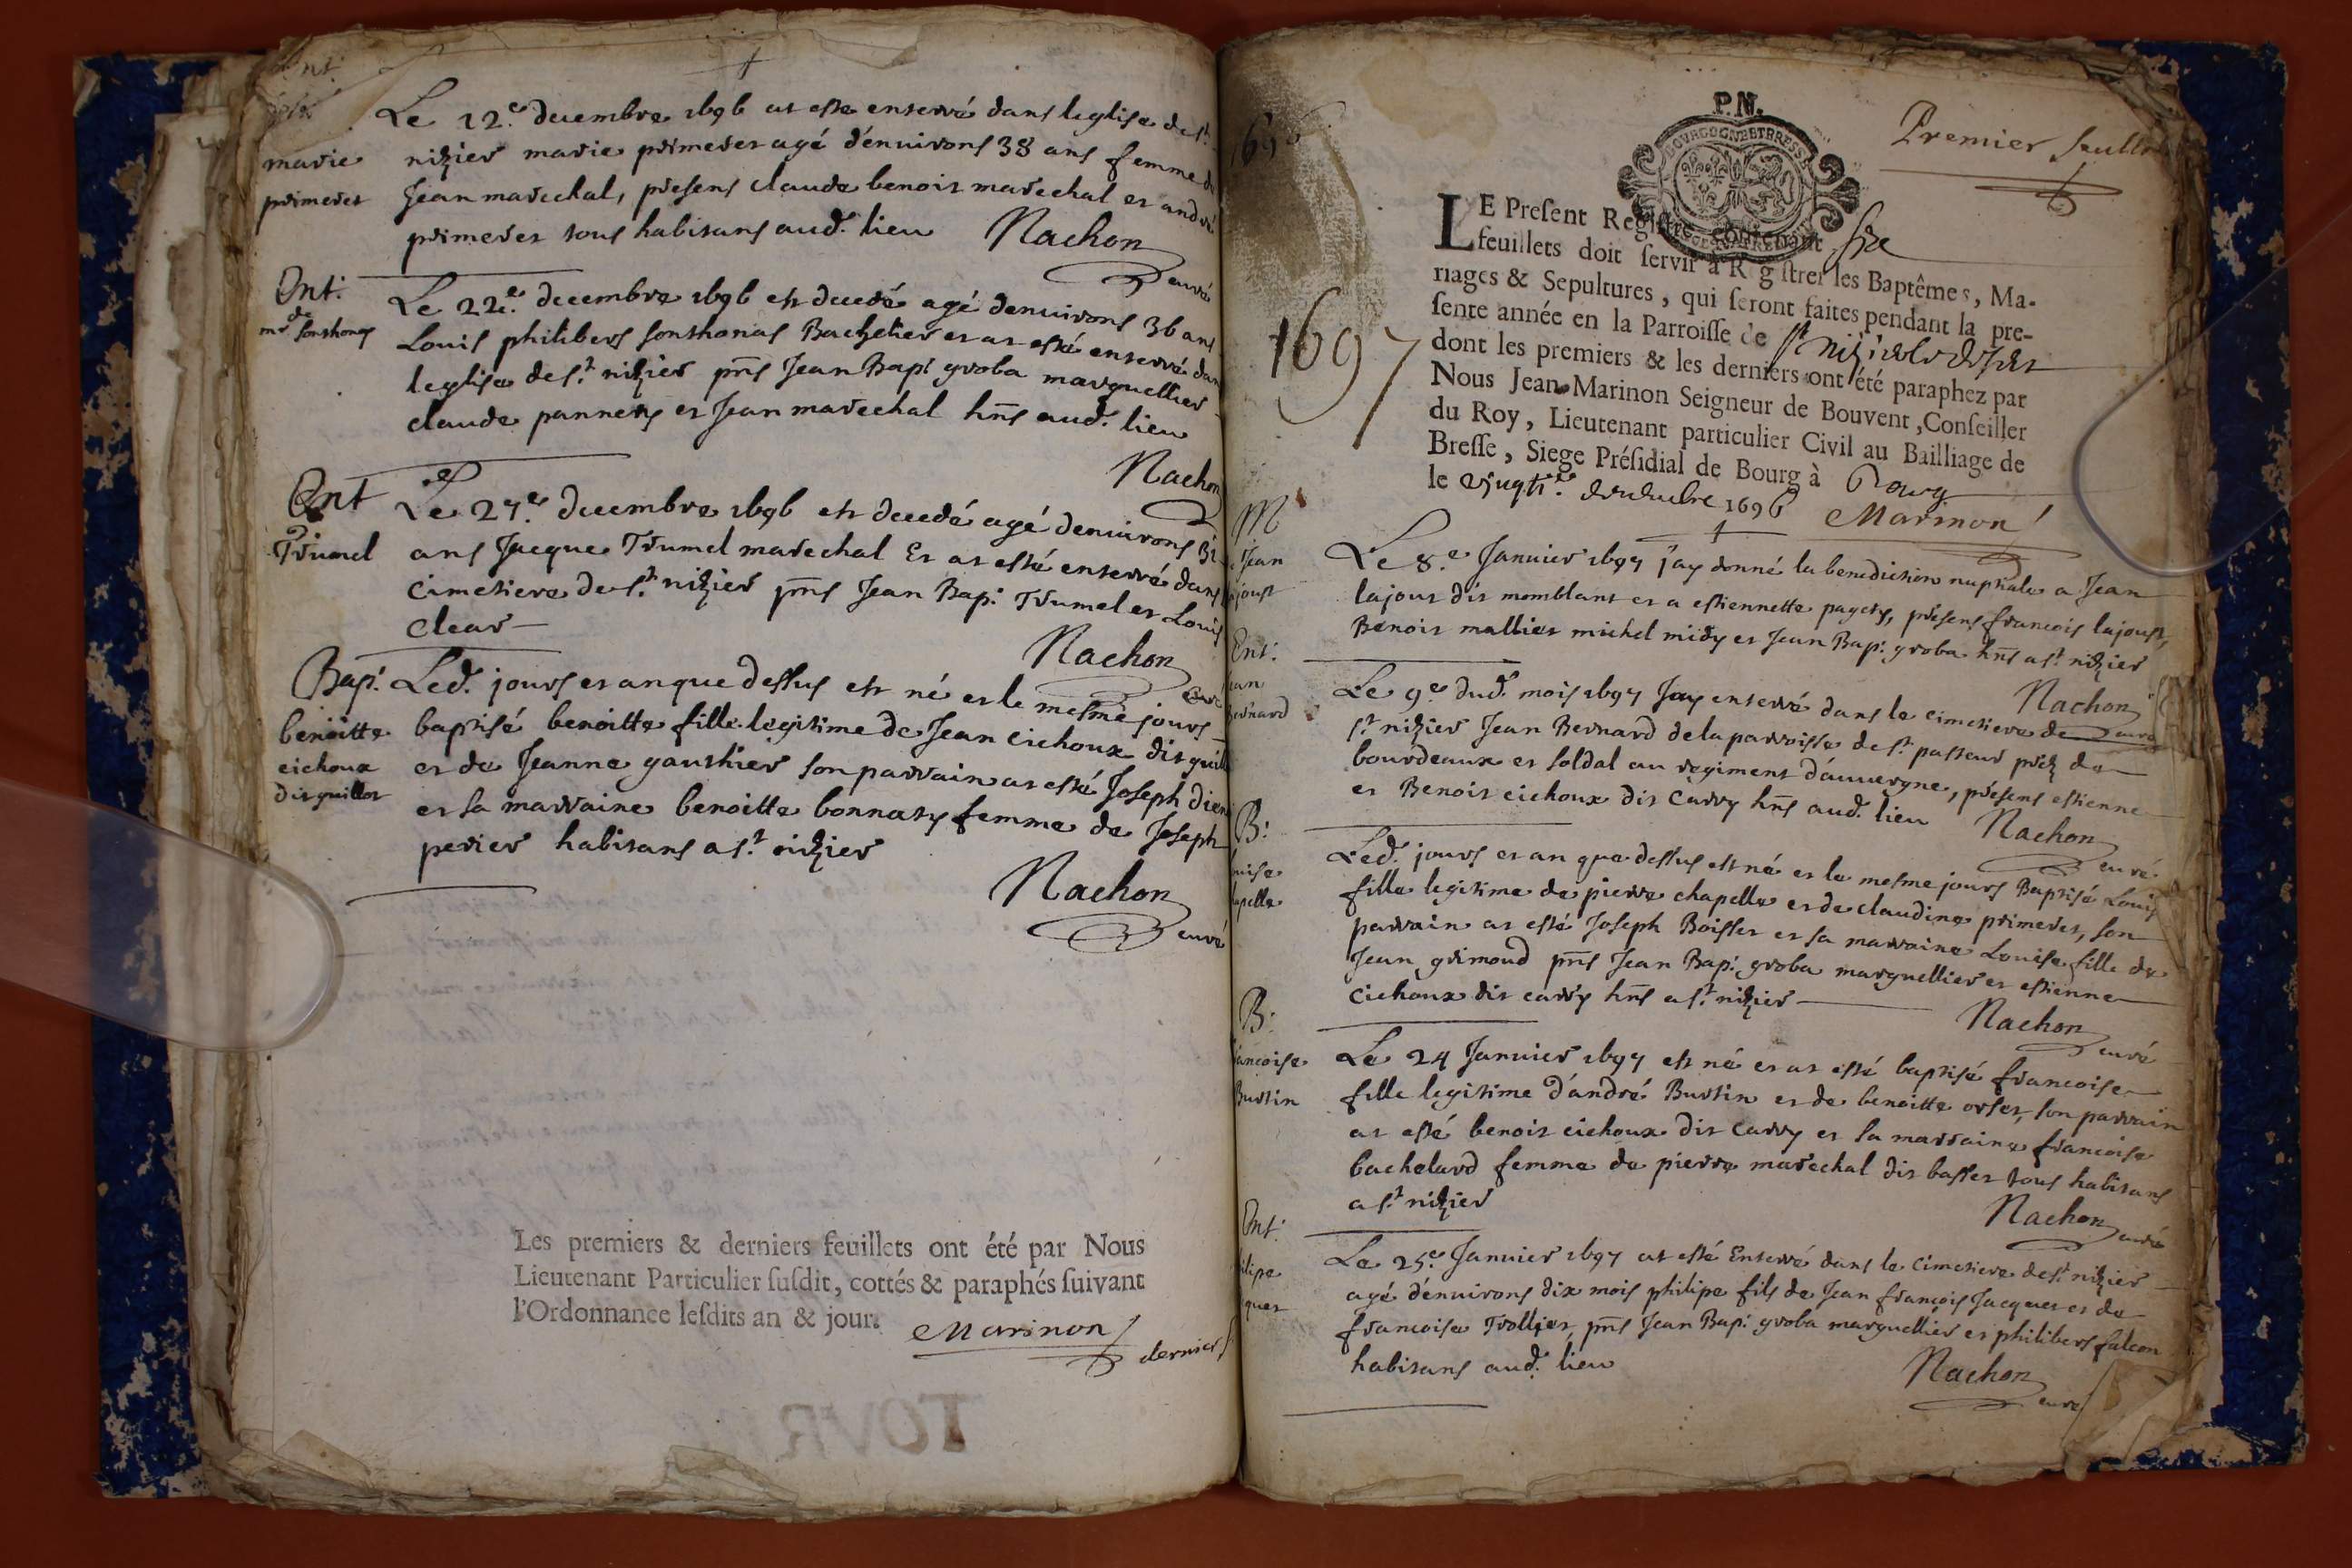 Ent.
marie
primeret
Le 12.e decembre 1696 at esté enterré dans leglise de st.
nizier marie primeret agé denvirons 38 ans femme de
Jean marechal, presens claude benoit marechal et andré
primeret tous habitans aud. lieu Nachon
curé
Ent.
mr. de sonthonas
Le 22e. decembre 1696 est decedé agé denvirons 36 ans
Louis philibert sonthonas Bachelier et at esté enterré dans
leglise de st. nizier pnts Jean Bapt groba marguellier
claude pannety et Jean marechal hnts aud. lieu
Nachon
Ent
Trumel
Le 27.e decembre 1696 est decedé agé denvirons 31
ans Jacque Trumel marechal Et at esté enterré dans
cimetiere de st. nizier pnts Jean Bap. Trumel et Louis
clear
Nachon
curé
Bap.
benoitte
cichoux
dit guillot
Led. jours et an que dessus est né et le mesme jours
baptisé benoitte fille legitime de Jean cichoux dit guill
et de Jeanne gauthier son parrain at esté Joseph
et sa marraine benoitte bonnaty femme de Joseph
perier habitans a st. nizier
Nachon
curé
Les premiers & derniers feuillets ont été par Nous
Lieutenant Particulier susdit, cottés & paraphés suivant
l'Ordonnance lesdits an & jour.
Marinon
dernier
P.N.
Premier feuillet
LE Present Registre contenant six
feuillets doit servir à Registrer les Baptêmes, Ma-
riages & Sepultures, qui seront faites pendant la pre-
sente année en la Parroisse de st nizier le desert
dont les premiers & les derniers ont été paraphez par
Nous Jean Marinon Seigneur de Bouvent, Conseiller
du Roy, Lieutenant particulier Civil au Bailliage de
Bresse, Siege Présidial de Bourg à Bourg
le 1696
Marinon
1697
M
Jean
lajoust
Le 8.e Januier 1697 jay donné la benediction nuptiale a Jean
lajout dit momblant et a estiennette pagety, presens francois lajoust,
Benoit mallier michel midy et Jean Bap. groba hnts a st. nizier
Nachon
curé
Ent.
Bernard
Le 9e dud. mois 1697 Jay enterré dans le cimetiere de
st. nizier Jean Bernard de la parroisse de st. pasteur prez de
bourdeaux et soldat au regiment d'auvergne, presens estienne
et Benoit cichoux dit Carry hnts aud. lieu Nachon
curé
B.
Led. jours et an que dessus est né et le mesme jours Baptisé Louis
fille legitime de pierre chapelle et de claudine primeret, son
parrain at esté Joseph Boisset et sa marraine Louise fille de
Jean grimoud pnts Jean Bap. groba marguellier et estienne
cichoux dit carry hnts a st. nizier
Nachon
curé
B.
Burtin
Le 24 Januier 1697 est né et at esté baptisé francoise
fille legitime d'andré Burtin et de benoitte orset, son parrain
at esté benoit cichoux dit Carry et sa marraine francoise
bachelard femme de pierre marechal dit basset tous habitans
a st. nizier
Nachon
curé
Ent.
Le 25.e Januier 1697 at esté Enterré dans le cimetiere de st. nizier
agé denvirons dix mois philipe fils de Jean françois Jacquet et de
francoise Trollier, pnts Jean Bap. groba marguellier et philibert falcon
habitans aud. lieu
Nachon
curé